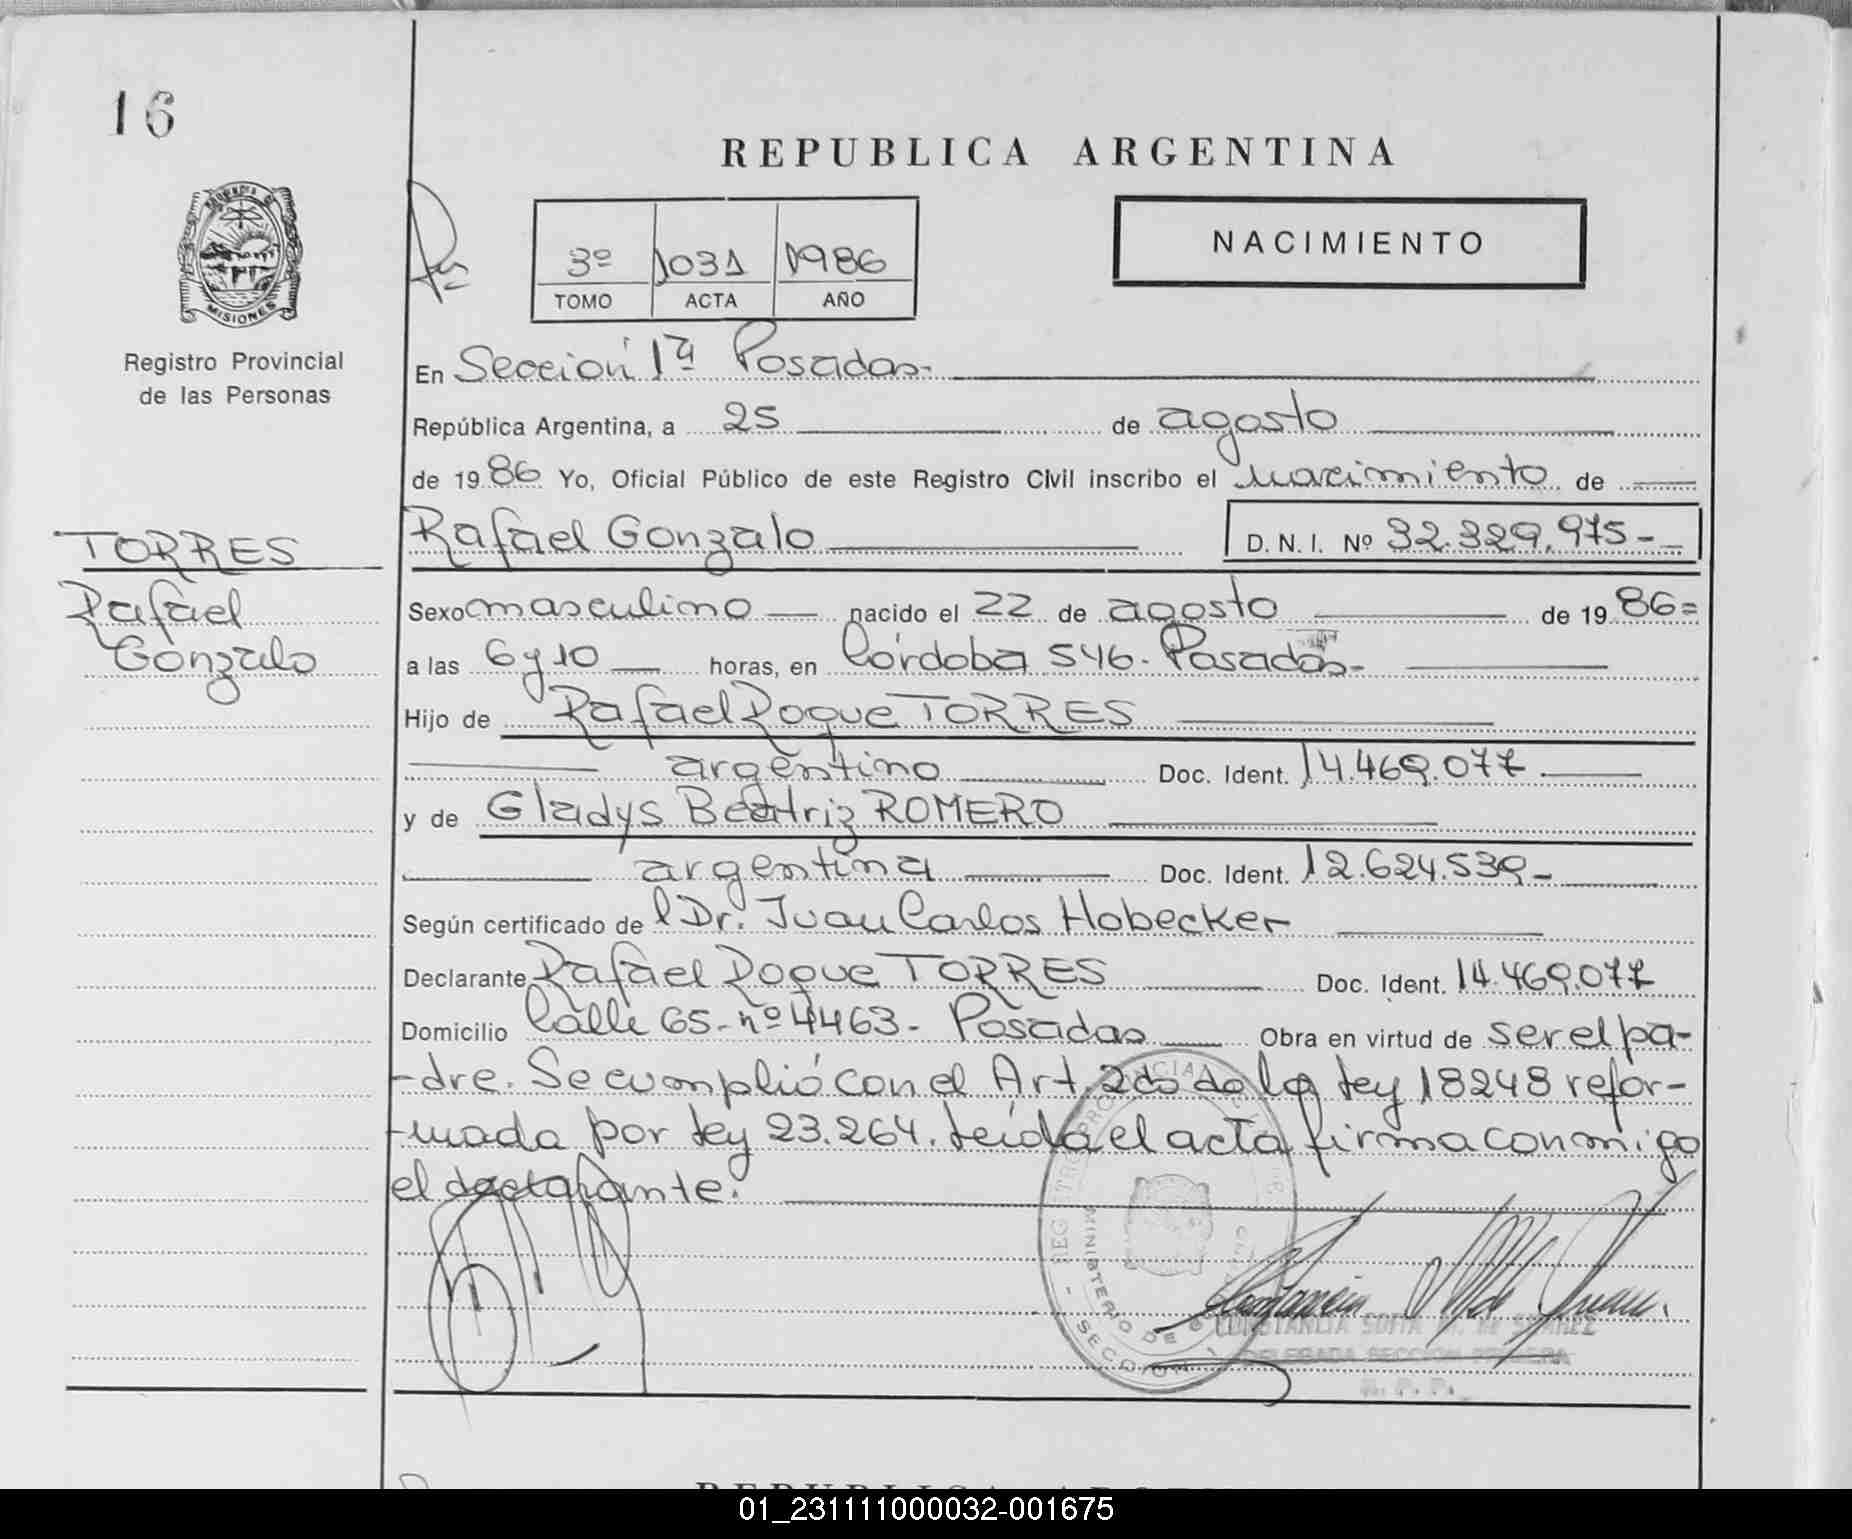 16
REPUBLICA ARGENTINA
3º 1031 1986
TOMO ACTA AÑO
NACIMIENTO
PROVINCIA DE MISIONES
Registro Provincial
de las Personas
En Sección 1ª Posadas.
República Argentina, a 25 de agosto
de 1986 Yo, Oficial Público de este Registro Civil inscribo el nacimiento de
Rafael Gonzalo D. N. I. Nº 32.329.975-
TORRES
Rafael
Gonzalo
Sexo masculino nacido el 22 de agosto de 1986=
a las 6 y 10 horas, en Córdoba 546. Posadas-
Hijo de Rafael Roque TORRES
argentino Doc. Ident. 14.469.077
y de Gladys Beatriz ROMERO
argentina Doc. Ident. 12.624.539-
Según certificado de l Dr. Juan Carlos Hobecker
Declarante Rafael Roque TORRES Doc. Ident. 14.469.077
Domicilio Calle 65- nº 4463- Posadas Obra en virtud de ser el pa-
-dre. Se cumplió con el Art. 2do de la Ley 18248 refor-
-mada por Ley 23.264. Leída el acta firma conmigo
el declarante.
REGISTRO PROVINCIAL DE LAS
MINISTERIO DE GOBIERNO
- SECCION 1 -
CONSTANCIA SOFIA M. de SUAREZ
DELEGADA SECCION PRIMERA
R. P. P.
REPUBLICA ARGENTINA
01_231111000032-001675